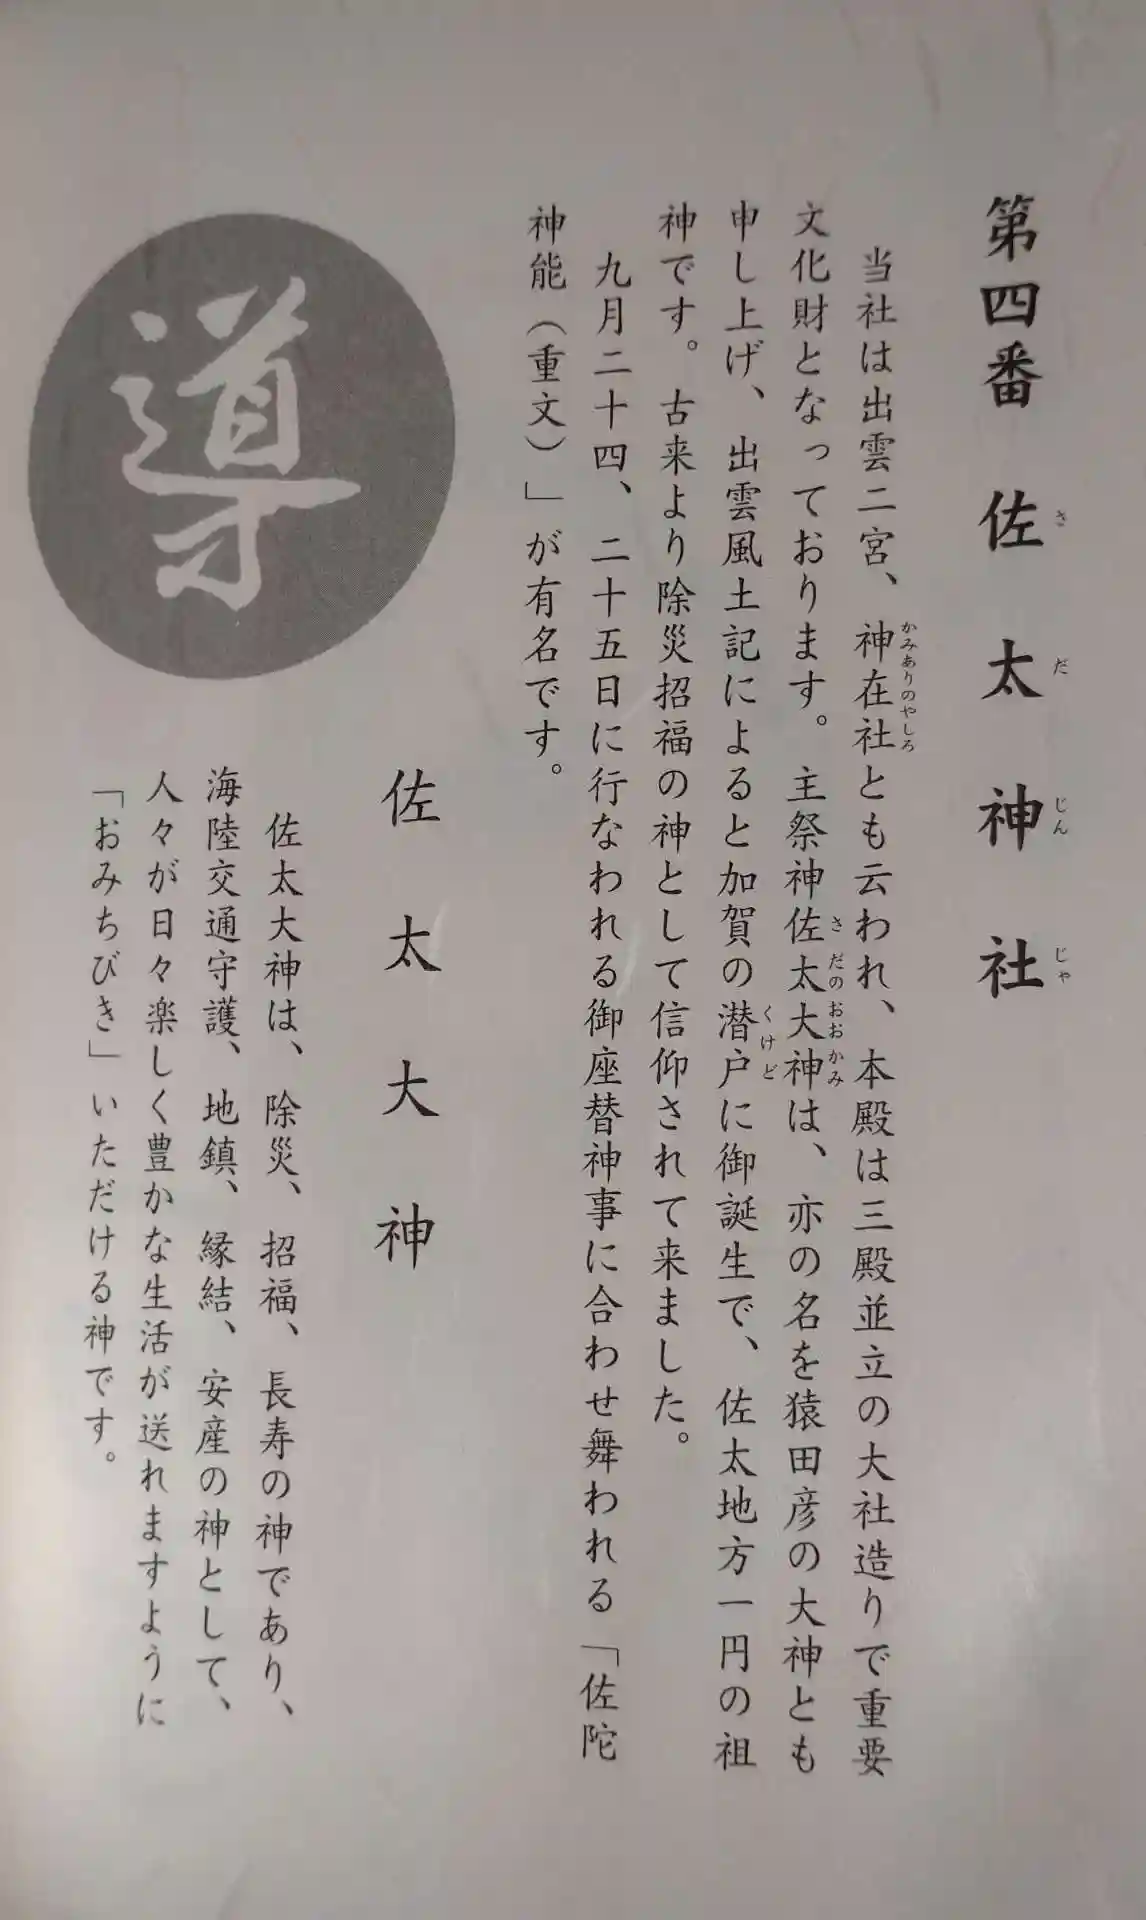 第四番 佐太神社
さ だ じん じゃ
当社は出雲二宮、神在社とも云われ、本殿は三殿並立の大社造りで重要
かみありのやしろ
文化財となっております。主祭神佐太大神は、亦の名を猿田彦の大神とも
さ だの おお かみ
申し上げ、出雲風土記によると加賀の潜戸に御誕生で、佐太地方一円の祖
くけど
神です。古来より除災招福の神として信仰されて来ました。
九月二十四、二十五日に行なわれる御座替神事に合わせ舞われる「佐陀
神能（重文）」が有名です。
佐太大神
佐太大神は、除災、招福、長寿の神であり、
海陸交通守護、地鎮、縁結、安産の神として、
人々が日々楽しく豊かな生活が送れますように
「おみちびき」いただける神です。
導